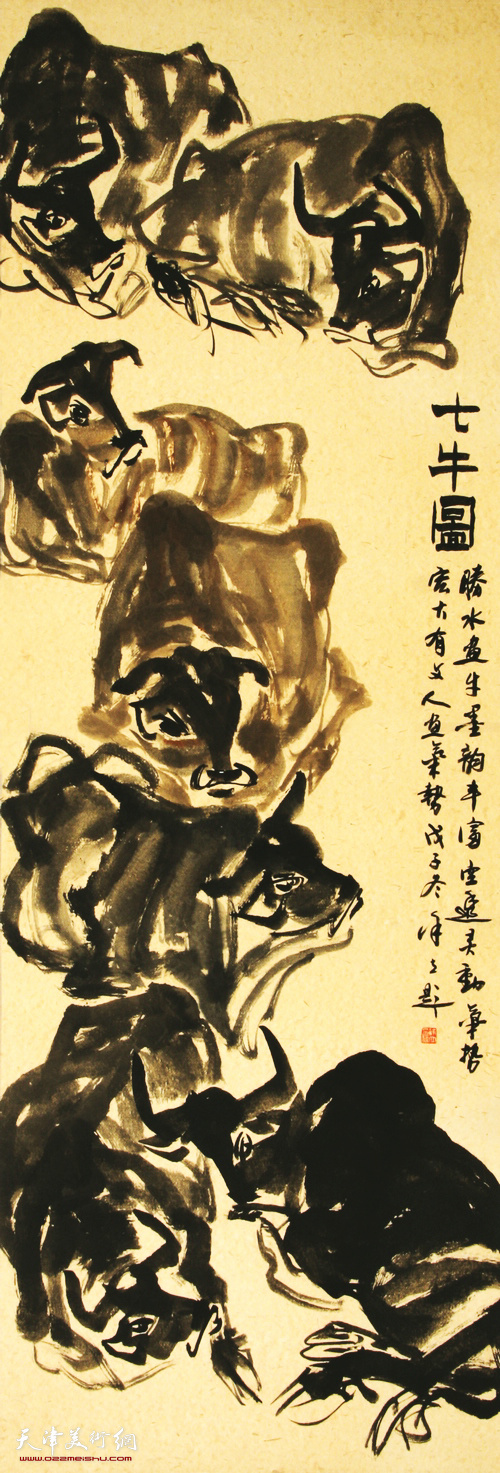 七牛圖
勝水画牛墨韵丰富空遥灵動氣势
宏大有文人画氣勢戊子冬
题
天津美术网
www.022meishu.com